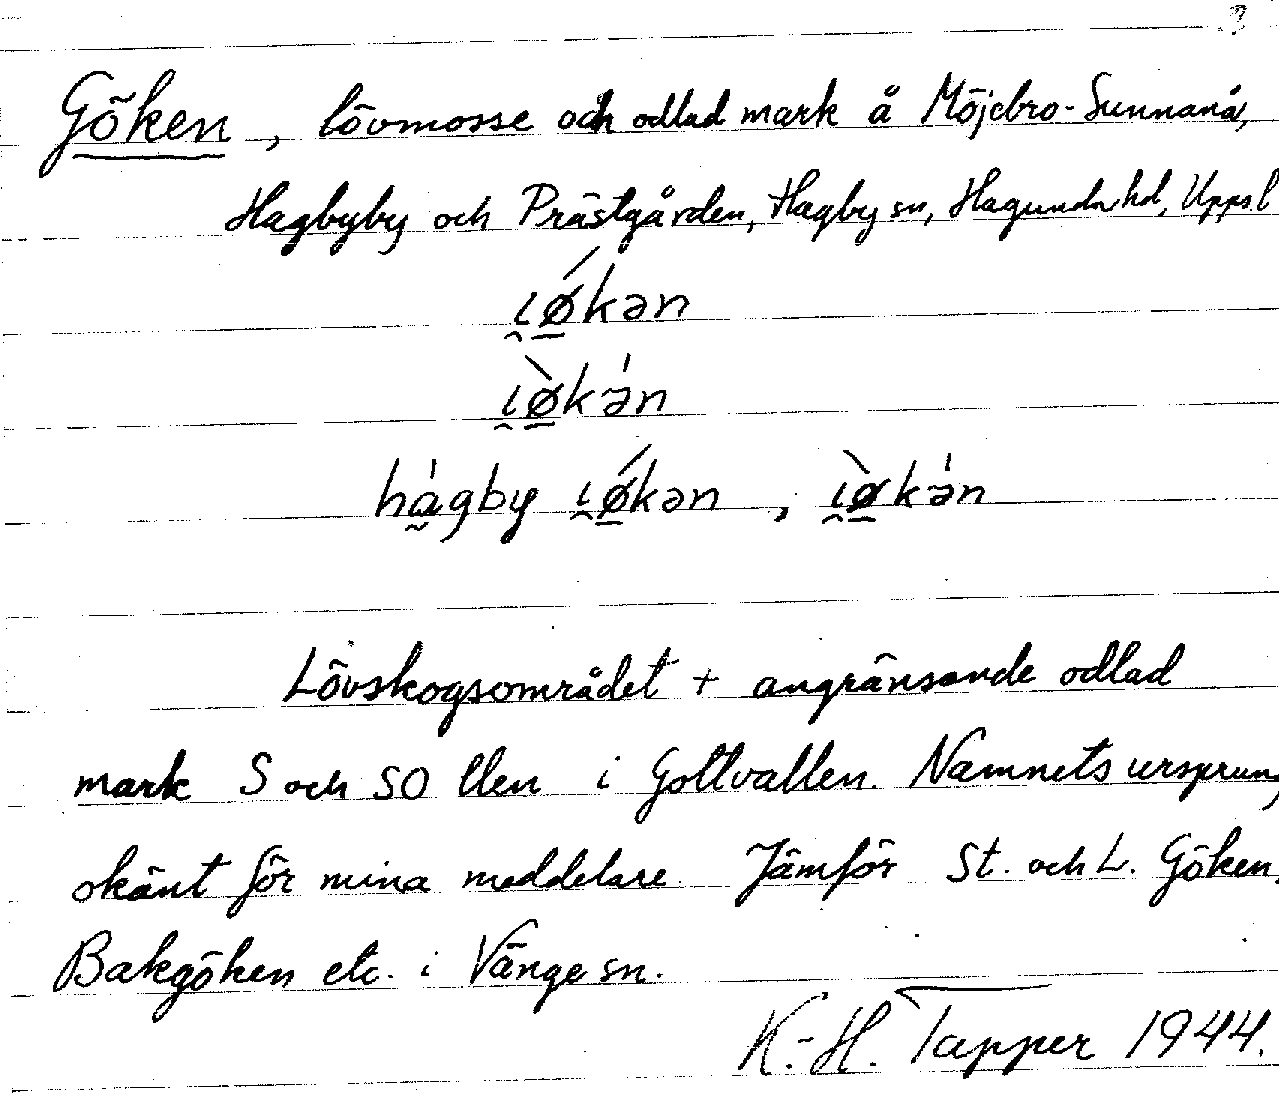 Göken, lövmosse och odlad mark å Möjebro-Sunnanå,
Hagbyby och Prästgården, Hagby sn, Hagunda hd, Uppsl
i̯ǿ̲kən
i̯ø̲̀kə́n
há̰gby i̯ǿ̲kən, i̯ø̲̀kə́n
Lövskogsområdet + angränsande odlad
mark S och SO llen i Gollvallen. Namnets ursprung
okänt för mina meddelare. Jämför St. och L. Göken,
Bakgöken etc. i Vänge sn.
K.-H. Tapper 1944.